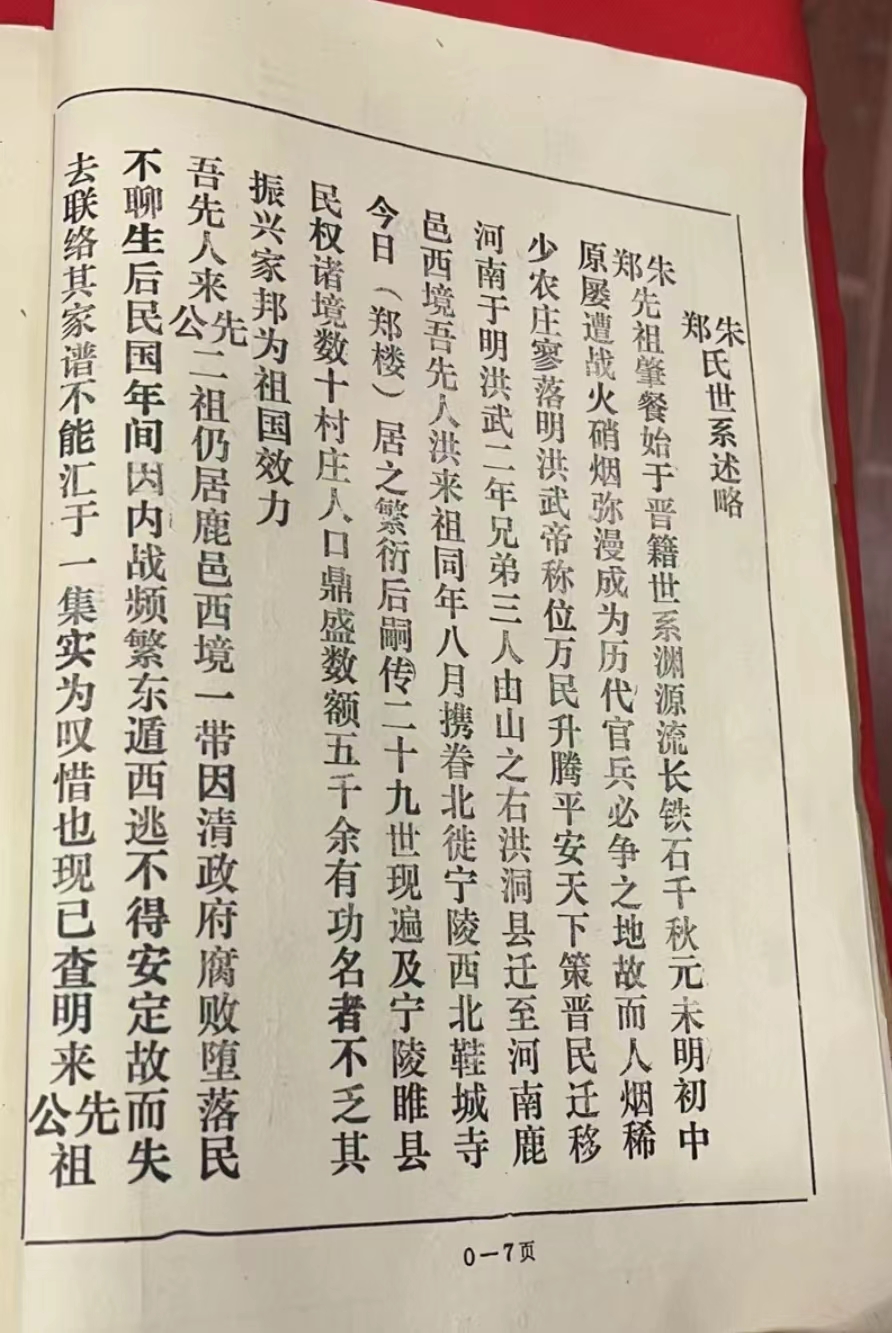 朱郑氏世系述略
朱郑先祖肇餐始于晋籍世系渊源流长铁石千秋元末明初中
原屡遭战火硝烟弥漫成为历代官兵必争之地故而人烟稀
少农庄寥落明洪武帝称位万民升腾平安天下策晋民迁移
河南于明洪武二年兄弟三人由山之右洪洞县迁至河南鹿
邑西境吾先人洪来祖同年八月携眷北徙宁陵西北鞋城寺
今日（郑楼）居之繁衍后嗣传二十九世现遍及宁陵睢县
民权诸境数十村庄人口鼎盛数额五千余有功名者不乏其
振兴家邦为祖国效力
吾先人来先公二祖仍居鹿邑西境一带因清政府腐败堕落民
不聊生后民国年间因内战频繁东遁西逃不得安定故而失
去联络其家谱不能汇于一集实为叹惜也现已查明来先公祖
0－7页